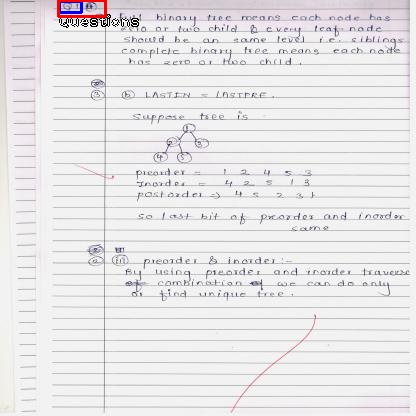 Q.1 (A)
Questions
Full binary tree means each node has
zero or two child & every leaf node
should be an same level i.e. siblings
complete binary tree means each node
has zero or two child.
(3) (b) LASTIN = LASTPRE.
Suppose tree is
1
2 3
4 5
preorder = 1 2 4 5 3
Inorder = 4 2 5 1 3
postorder => 4 5 2 3 1
so last bit of preorder and inorder
same
(a) (iii) preorder & inorder :-
By using preorder and inorder traverse
combination of we can do only
or find unique tree.